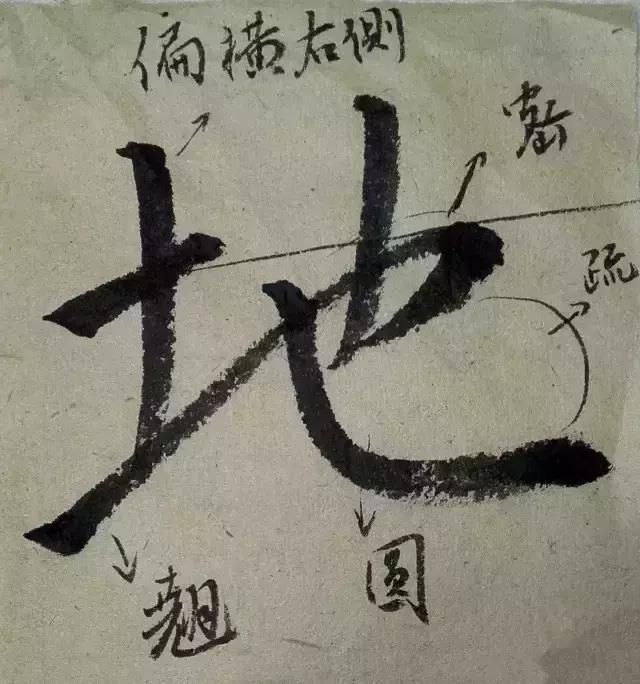 偏横右側
密
疏
地
翘
圆